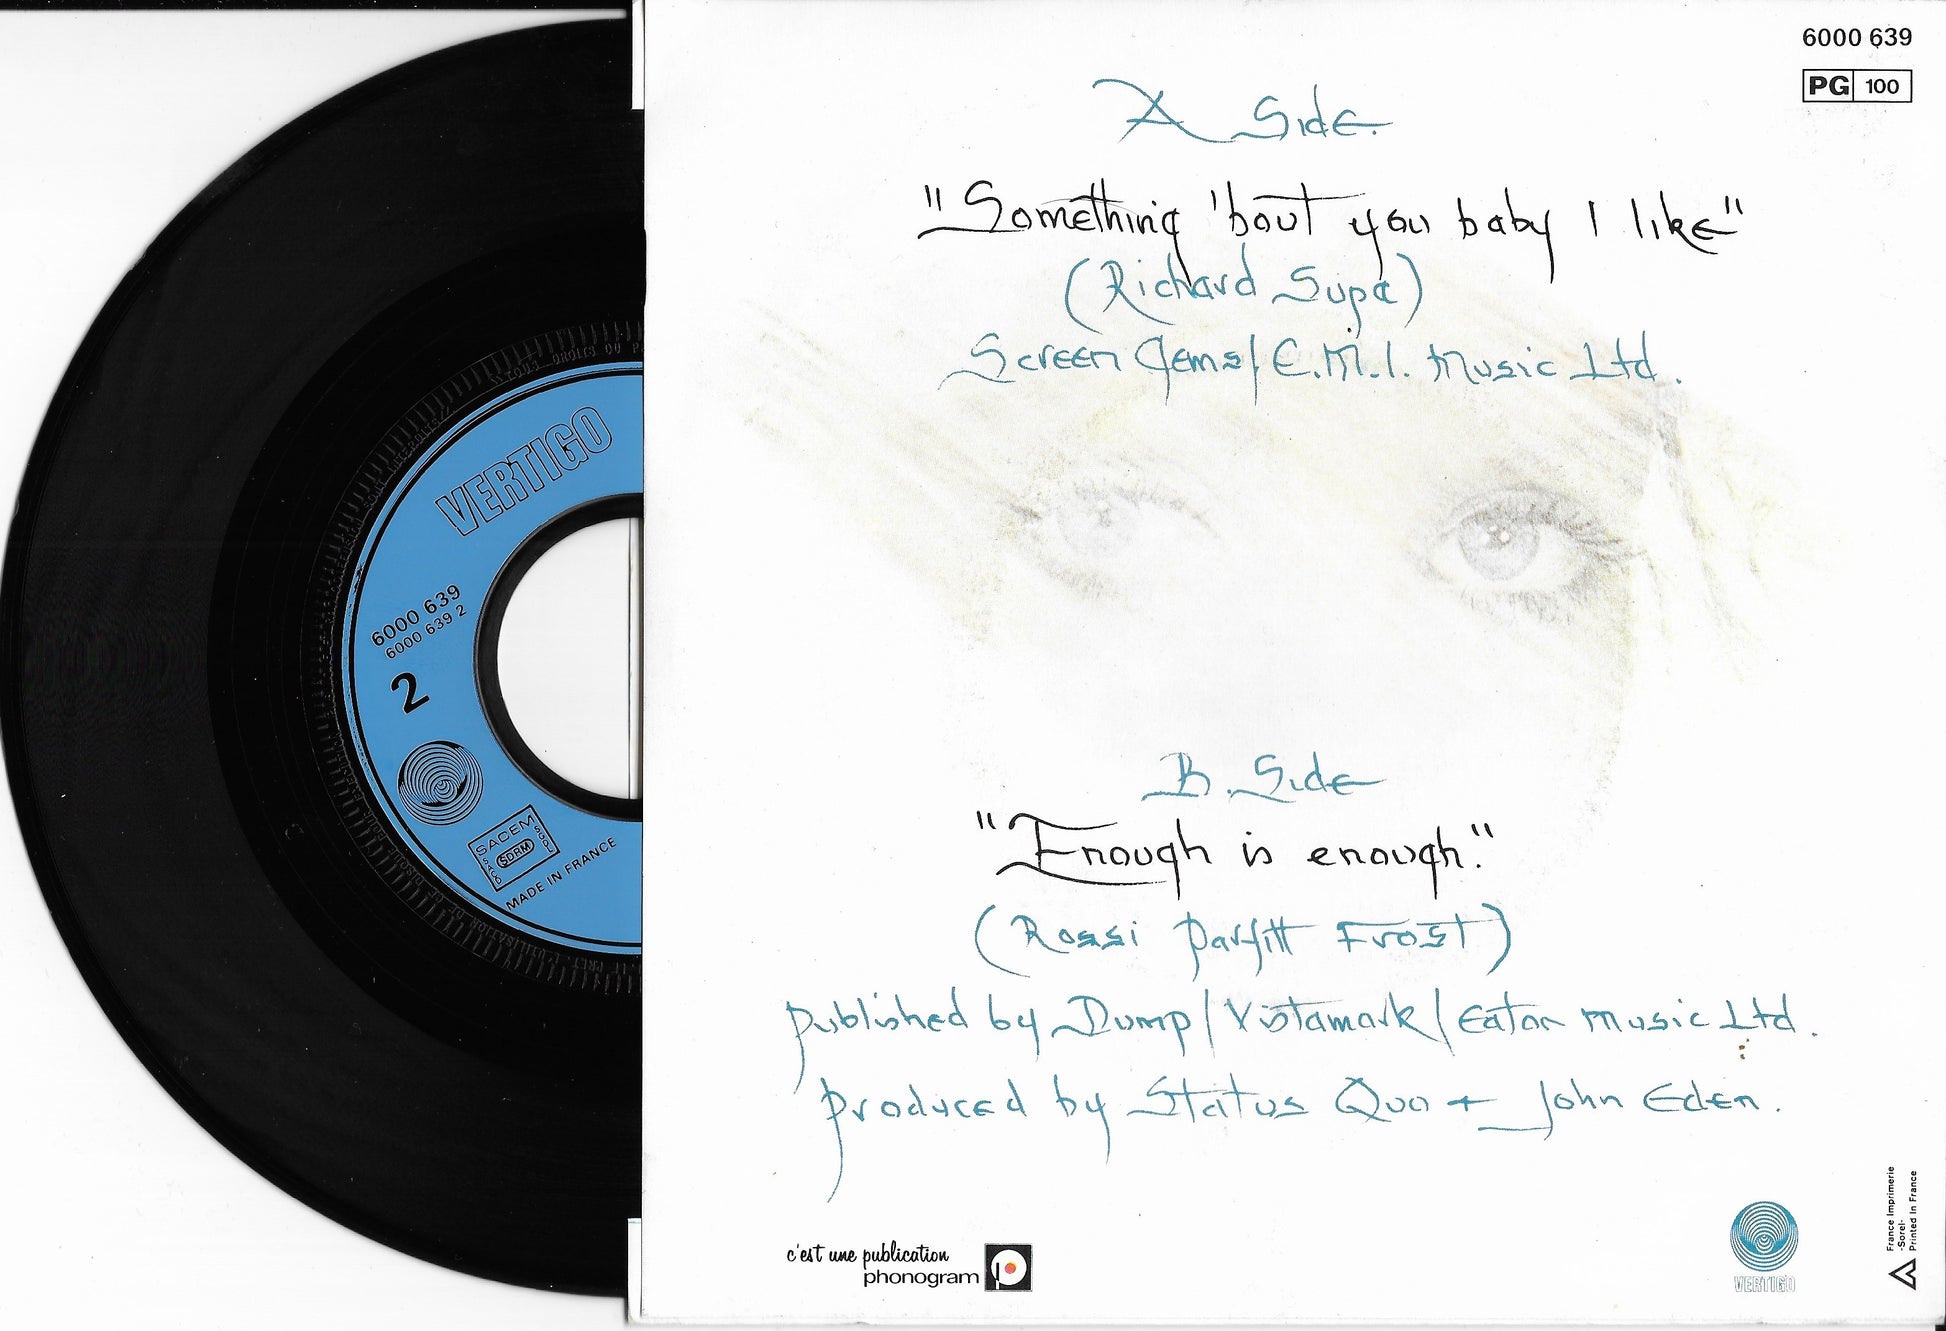 VERTIGO
6000 639
6000 639 2
2
SACEM
SACD SDRM SGDL
MADE IN FRANCE
6000 639
PG 100
A Side.
"Something 'bout you baby I like"
(Richard Supa)
Screen Gems/E.M.I. Music Ltd.
B. Side
"Enough is enough."
(Rossi Parfitt Frost)
published by Dump/Vistamark/Eaton Music Ltd.
produced by Status Quo + John Eden.
c'est une publication
phonogram
VERTIGO
France Imprimerie
-Sorel-
Printed in France